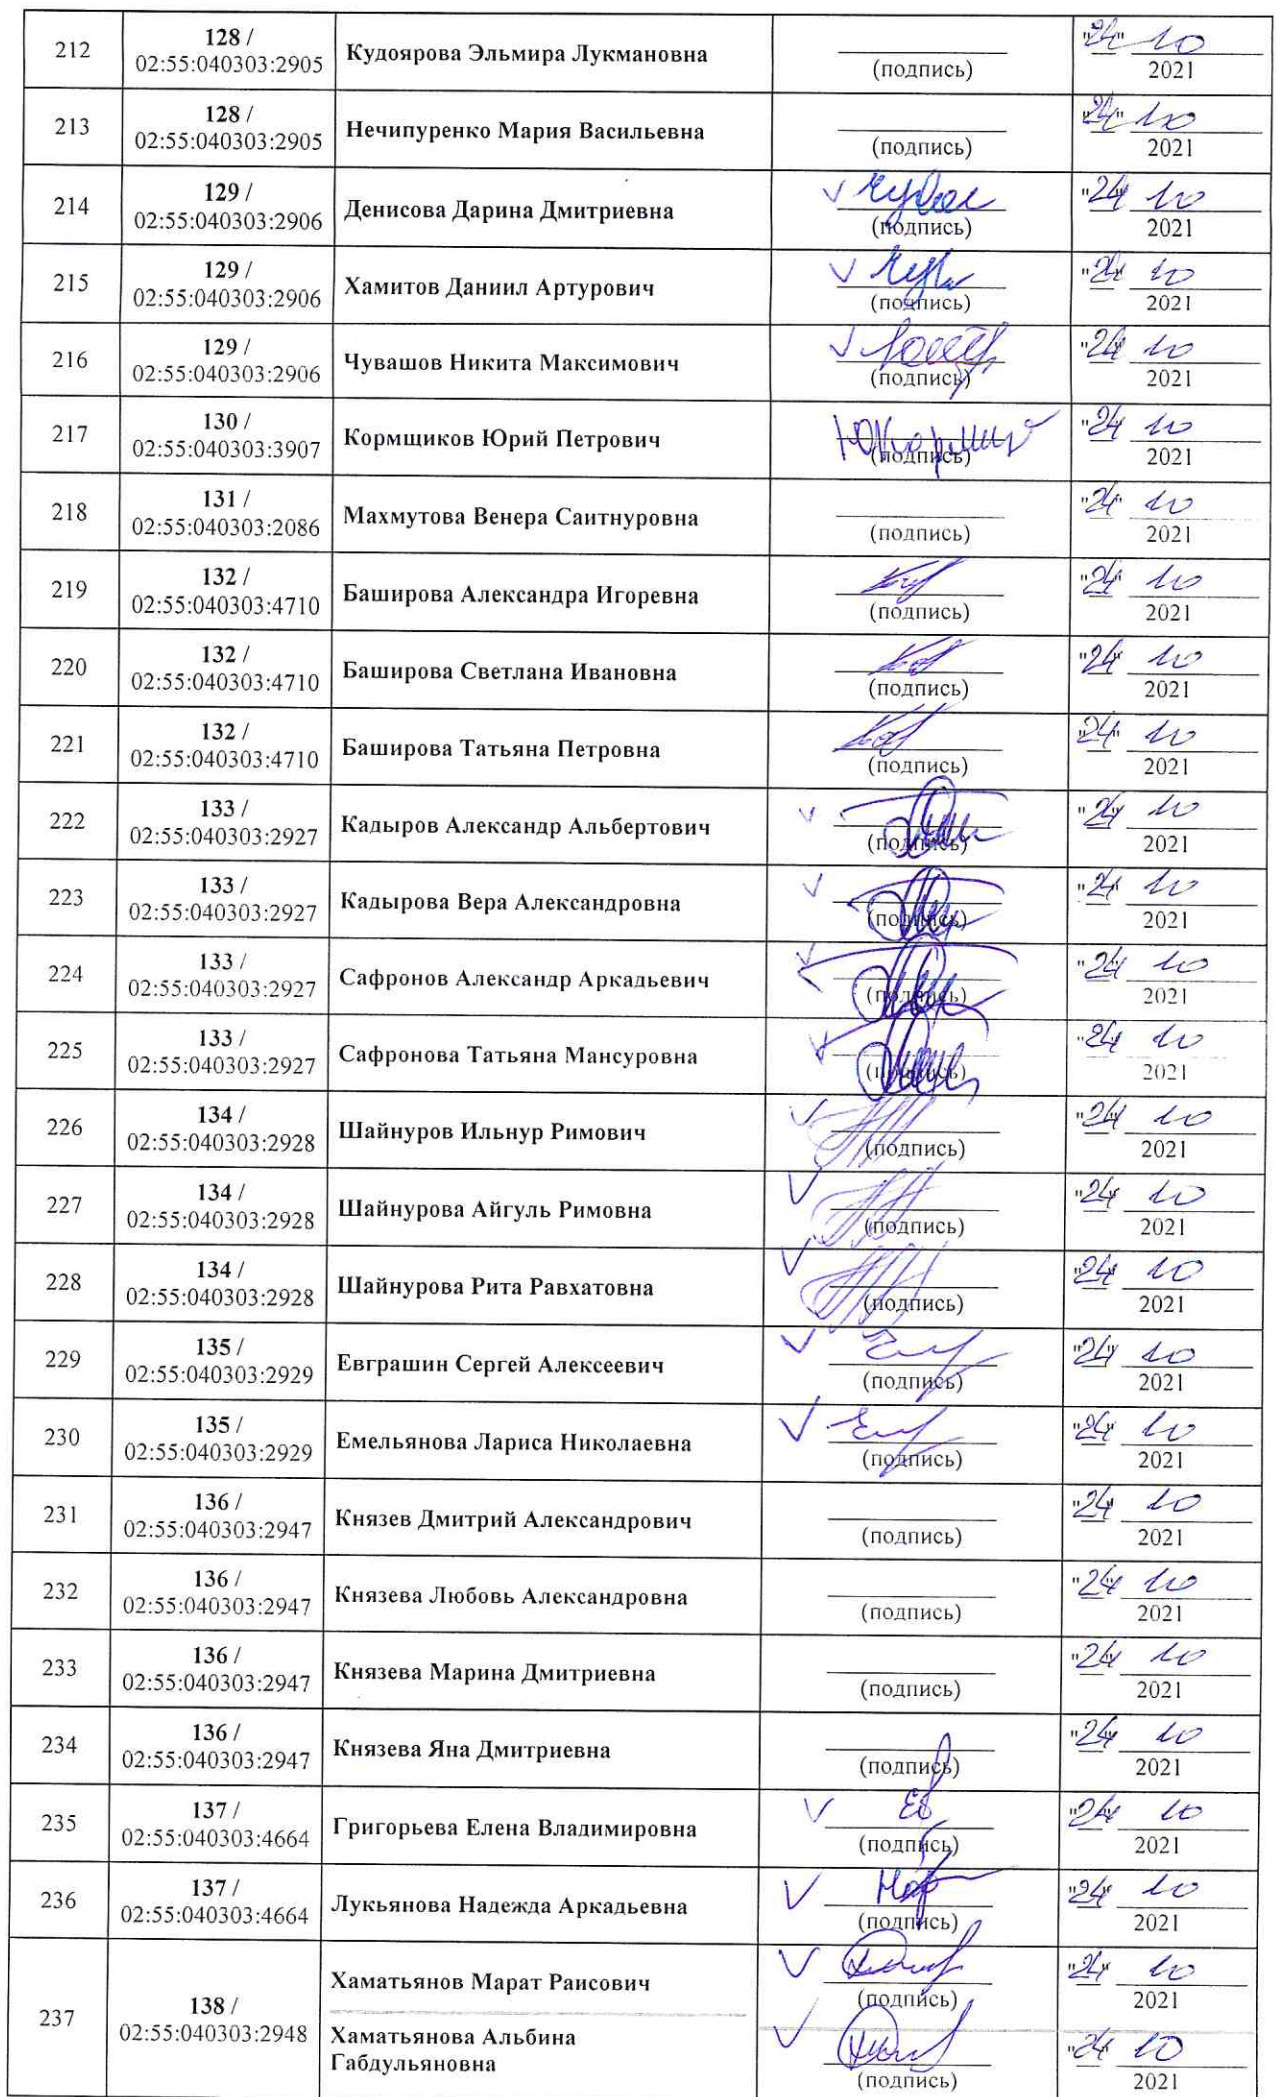 212
128 /
02:55:040303:2905
Кудоярова Эльмира Лукмановна
(подпись)
"24" 10
2021
213
128 /
02:55:040303:2905
Нечипуренко Мария Васильевна
(подпись)
"24" 10
2021
214
129 /
02:55:040303:2906
Денисова Дарина Дмитриевна
(подпись)
"24" 10
2021
215
129 /
02:55:040303:2906
Хамитов Даниил Артурович
(подпись)
"24" 10
2021
216
129 /
02:55:040303:2906
Чувашов Никита Максимович
(подпись)
"24" 10
2021
217
130 /
02:55:040303:3907
Кормщиков Юрий Петрович
(подпись)
"24" 10
2021
218
131 /
02:55:040303:2086
Махмутова Венера Саитнуровна
(подпись)
"24" 10
2021
219
132 /
02:55:040303:4710
Баширова Александра Игоревна
(подпись)
"24" 10
2021
220
132 /
02:55:040303:4710
Баширова Светлана Ивановна
(подпись)
"24" 10
2021
221
132 /
02:55:040303:4710
Баширова Татьяна Петровна
(подпись)
"24" 10
2021
222
133 /
02:55:040303:2927
Кадыров Александр Альбертович
(подпись)
"24" 10
2021
223
133 /
02:55:040303:2927
Кадырова Вера Александровна
(подпись)
"24" 10
2021
224
133 /
02:55:040303:2927
Сафронов Александр Аркадьевич
(подпись)
"24" 10
2021
225
133 /
02:55:040303:2927
Сафронова Татьяна Мансуровна
(подпись)
"24" 10
2021
226
134 /
02:55:040303:2928
Шайнуров Ильнур Римович
(подпись)
"24" 10
2021
227
134 /
02:55:040303:2928
Шайнурова Айгуль Римовна
(подпись)
"24" 10
2021
228
134 /
02:55:040303:2928
Шайнурова Рита Равхатовна
(подпись)
"24" 10
2021
229
135 /
02:55:040303:2929
Евграшин Сергей Алексеевич
(подпись)
"24" 10
2021
230
135 /
02:55:040303:2929
Емельянова Лариса Николаевна
(подпись)
"24" 10
2021
231
136 /
02:55:040303:2947
Князев Дмитрий Александрович
(подпись)
"24" 10
2021
232
136 /
02:55:040303:2947
Князева Любовь Александровна
(подпись)
"24" 10
2021
233
136 /
02:55:040303:2947
Князева Марина Дмитриевна
(подпись)
"24" 10
2021
234
136 /
02:55:040303:2947
Князева Яна Дмитриевна
(подпись)
"24" 10
2021
235
137 /
02:55:040303:4664
Григорьева Елена Владимировна
(подпись)
"24" 10
2021
236
137 /
02:55:040303:4664
Лукьянова Надежда Аркадьевна
(подпись)
"24" 10
2021
237
138 /
02:55:040303:2948
Хаматьянов Марат Раисович
(подпись)
"24" 10
2021
Хаматьянова Альбина
Габдульяновна
(подпись)
"24" 10
2021